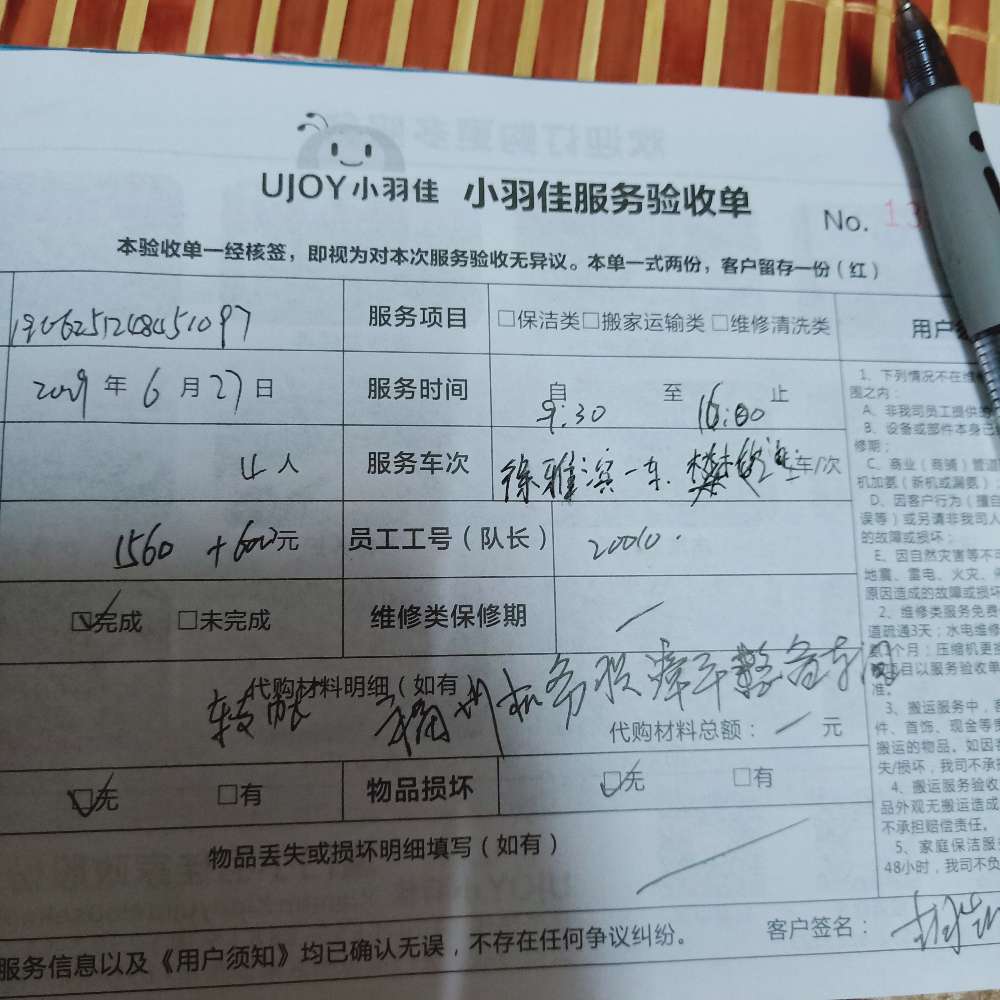 UJOY小羽佳 小羽佳服务验收单
No. 13
本验收单一经核签，即视为对本次服务验收无异议。本单一式两份，客户留存一份（红）
服务项目 □保洁类□搬家运输类 □维修清洗类
年 6 月 27 日 服务时间 自 9:30 至 16:00 止
4 人 服务车次 徐雅滨一车. 车/次
1560 +600元 员工工号（队长） 20010.
☑完成 □未完成 维修类保修期 /
代购材料明细（如有）
转帐
代购材料总额： / 元
☑无 □有 物品损坏 ☑无 □有
物品丢失或损坏明细填写（如有）
服务信息以及《用户须知》均已确认无误，不存在任何争议纠纷。
客户签名：
用户
1、下列情况不在维
围之内：
A、非我司员工提供的
B、设备或部件本身已
修期；
C、商业（商铺）管道
机加氨（新机或漏氨）
D、因客户行为（擅自
误等）或另请非我司人
的故障或损坏；
E、因自然灾害等不可
地震、雷电、火灾、
原因造成的故障或损坏
2、维修类服务免费
道疏通3天；水电维修
个月；压缩机更换
项目以服务验收单
准。
3、搬运服务中，
件、首饰、现金等
搬运的物品。如因
失/损坏，我司不承担
4、搬运服务验收
品外观无搬运造成
不承担赔偿责任。
5、家庭保洁服
48小时，我司不负